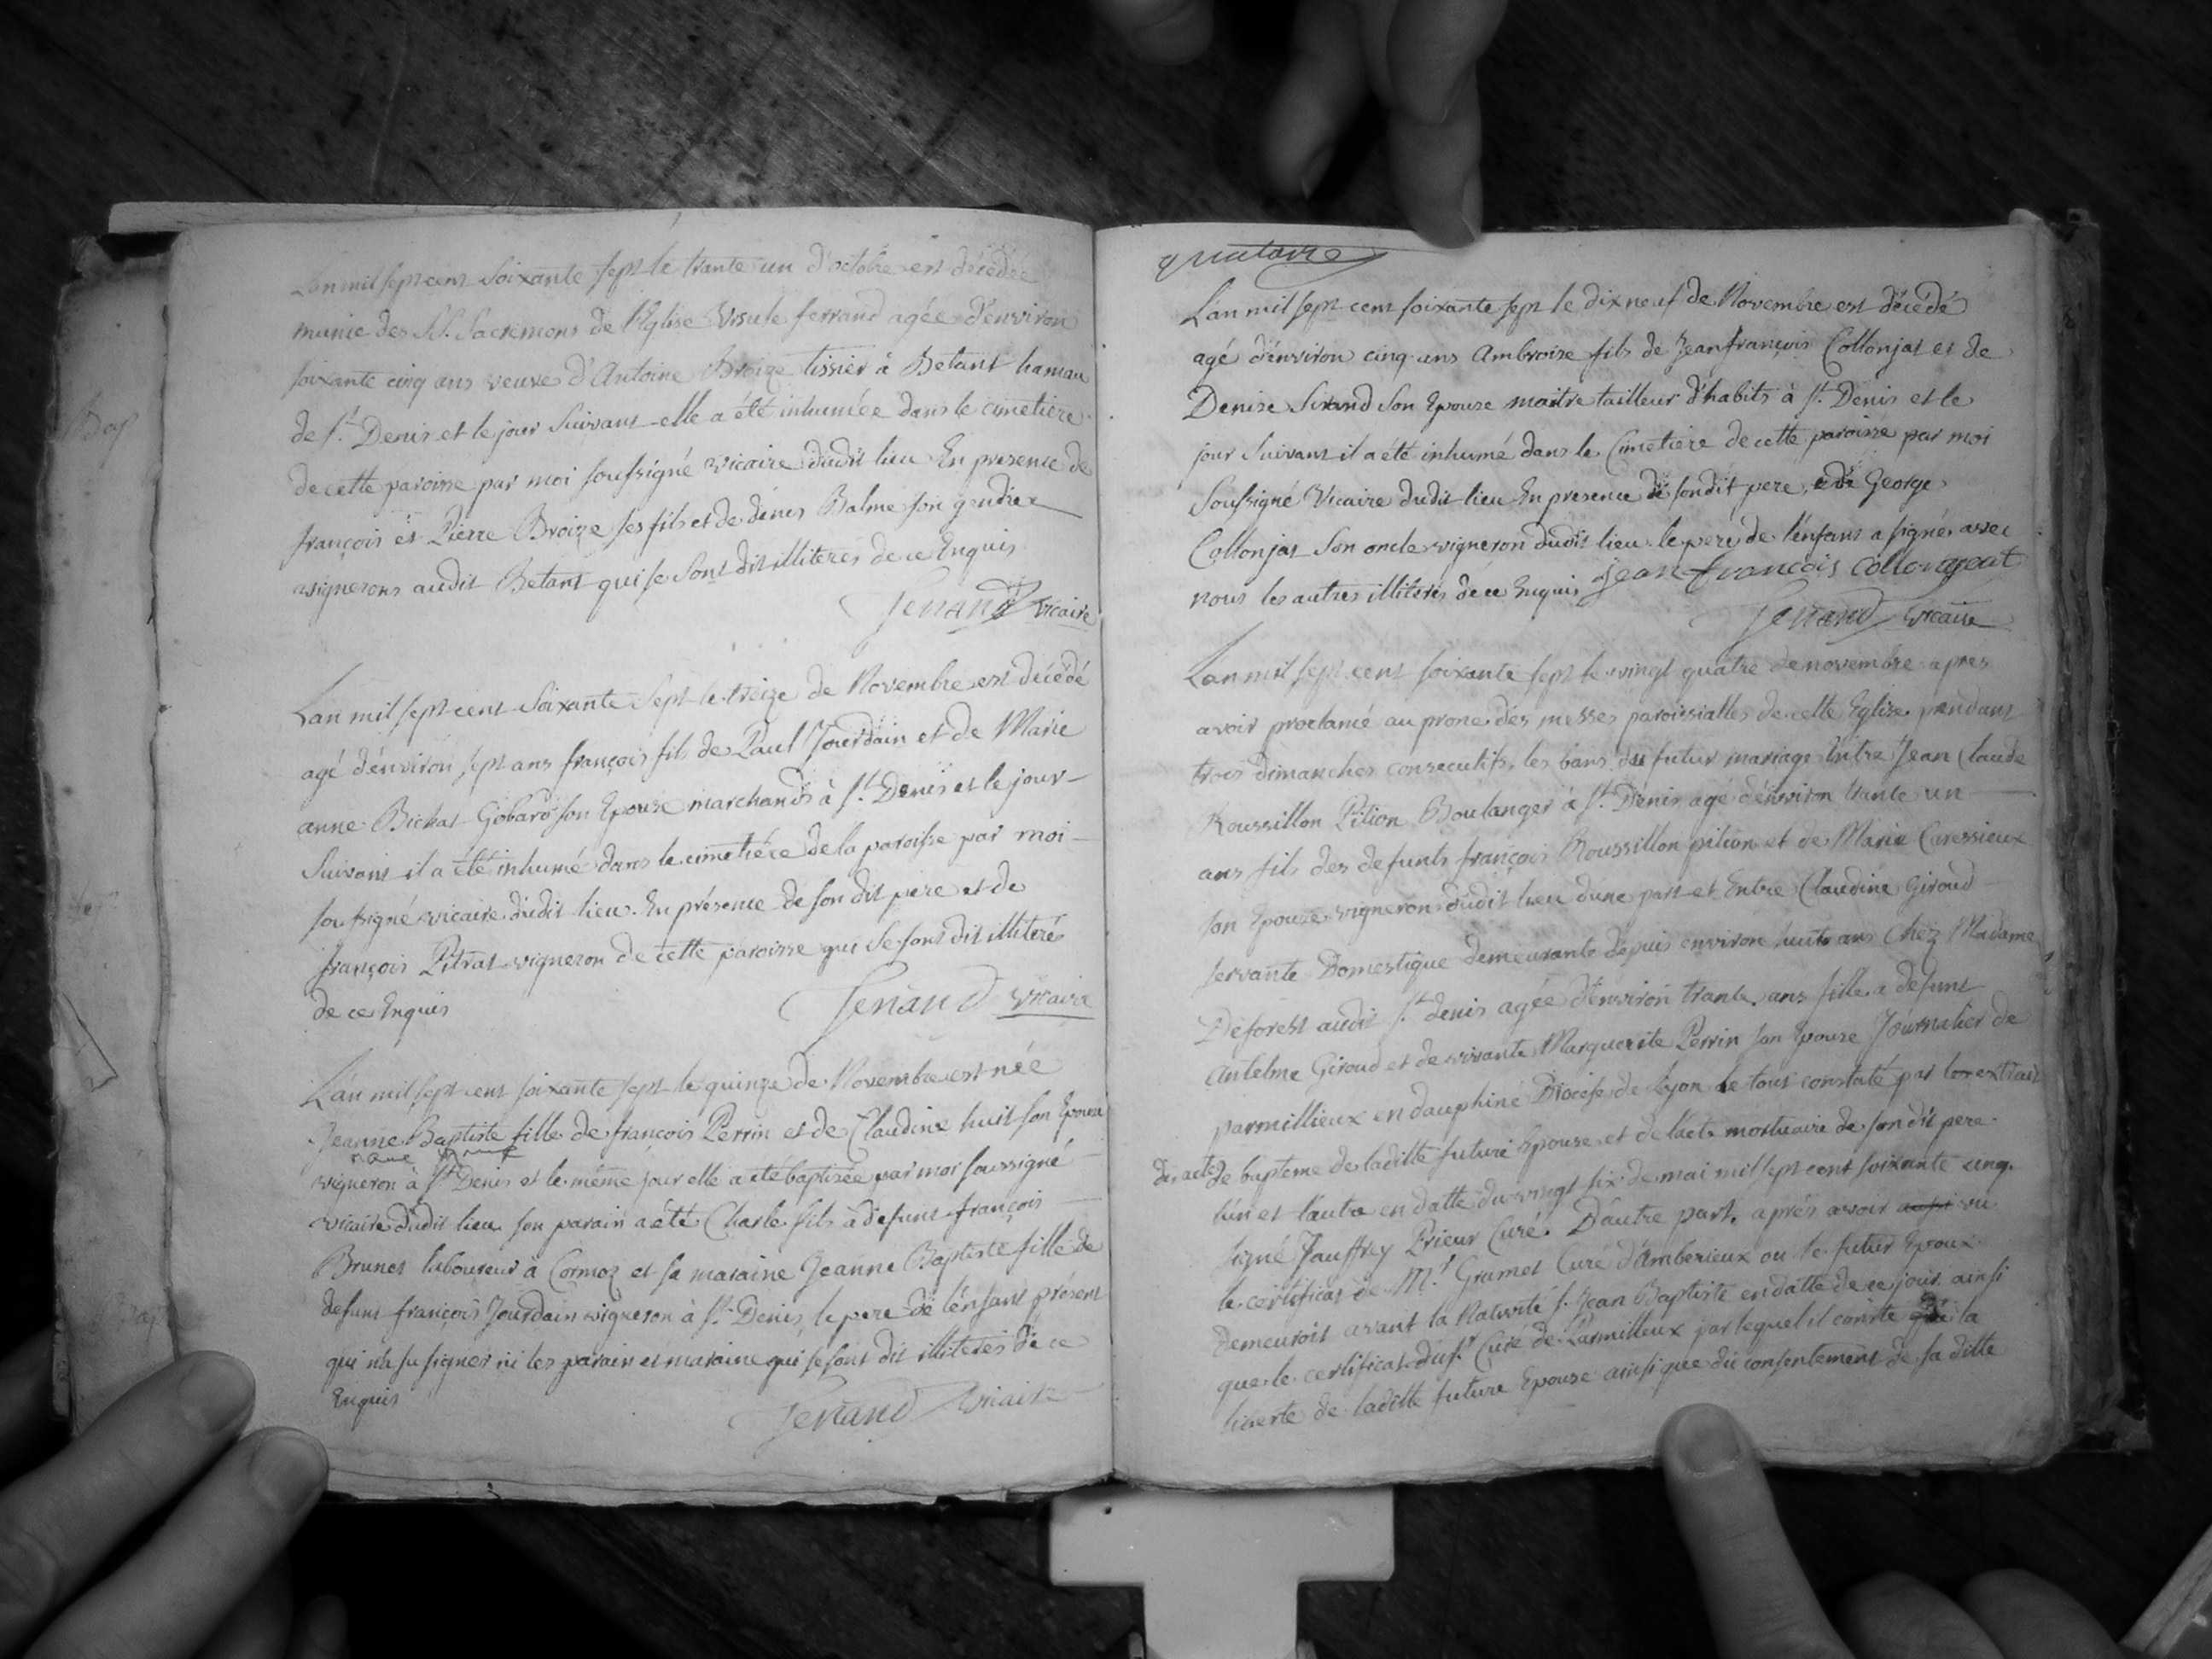 L'an mil sept cent soixante sept le trante un d'octobre est décédée
munie des SS. Sacremens de l'Eglise Ursule ferrand agée d'environ
soixante cinq ans veuve d'Antoine Broize tissier à Betant hamau
de St. Denis et le jour suivant elle a été inhumée dans le cimetiere
de cette paroisse par moi soussigné vicaire dudit lieu En presence de
françois et Pierre Broize ses fils et de denis Balme son gendre
vignerons audit Betant qui se sont dit illiteres de ce Enquis
vicaire
L'an mil sept cent soixante sept le treize de Novembre est décédé
agé d'environ sept ans françois fils de Paul Jourdain et de Marie
anne Bichat Gobard son Epouse marchands à St. Denis et le jour
suivant il a été inhumé dans le cimetiére de la paroisse par moi
soussigné vicaire dudit lieu. En présence de son dit pere et de
françois Pitrat vigneron de cette paroisse qui se sont dit illiterés
de ce Enquis
vicaire
L'an mil sept cent soixante sept le quinze de Novembre est née
Jeanne Baptiste fille de françois Perrin et de Claudine huit son Epouse
vigneron à St Denis et le même jour elle a été baptisée par moi soussigné
vicaire dudit lieu son parain a été Charle fils à defunt françois
Brunet laboureur à Cormoz et sa maraine Jeanne Baptiste fille de
defunt françois Jourdain vigneron à St. Denis, le pere de l'enfant présent
qui n'a su signer ni les parain et maraine qui se sont dit illiterés de ce
Enquis
vicaire
L'an mil sept cent soixante sept le dix neuf de Novembre est décédé
agé d'environ cinq ans Ambroise fils de Jean françois Collonjat et de
Denise Sirand son Epouse maitre tailleur d'habits à St. Denis et le
jour suivant il a été inhumé dans le Cimetiere de cette paroisse par moi
soussigné Vicaire dudit lieu En presence de sondit pere, et de George
Collonjat son oncle vigneron dudit lieu le pere de l'enfant a signé avec
nous les autres illiterés de ce Enquis jean francois collongeat
vicaire
L'an mil sept cent soixante sept le vingt quatre de novembre apres
avoir proclamé au prone des messes paroissialles de cette Eglise pendant
trois dimanches consecutifs, les bans du futur mariage Entre Jean Claude
Roussillon Pilion Boulanger à St. Denis agé d'environ trante un
ans fils des defunts françois Roussillon pilion et de Marie Caressieux
son Epouse vigneron dudit lieu d'une part et Entre Claudine Giroud
servante Domestique demeurante depuis environ huit ans chez Madame
Deforest audit St. denis agée d'environ trante ans fille a defunt
Antelme Giroud et de vivante Marguerite Perrin son Epouse Journalier de
parmillieux en dauphiné Diocèse de Lyon le tout constaté par les extrait
des actes de bapteme de laditte future Epouse et de l'acte mortuaire de son dit pere
l'un et l'autre en datte du vingt six de mai mil sept cent soixante cinq.
signé Jauffrey Prieur Curé. D'autre part. aprés avoir vu
le certificat de Mr. Gramet Curé d'Amberieux ou le futur Epoux
demeuroit avant la Nativité S. Jean Baptiste en datte de ce jour ainsi
que le certificat du Sr Curé de Parmilleux par lequel il conste que la
liberté de laditte future Epouse ainsi que du consentement de sa ditte